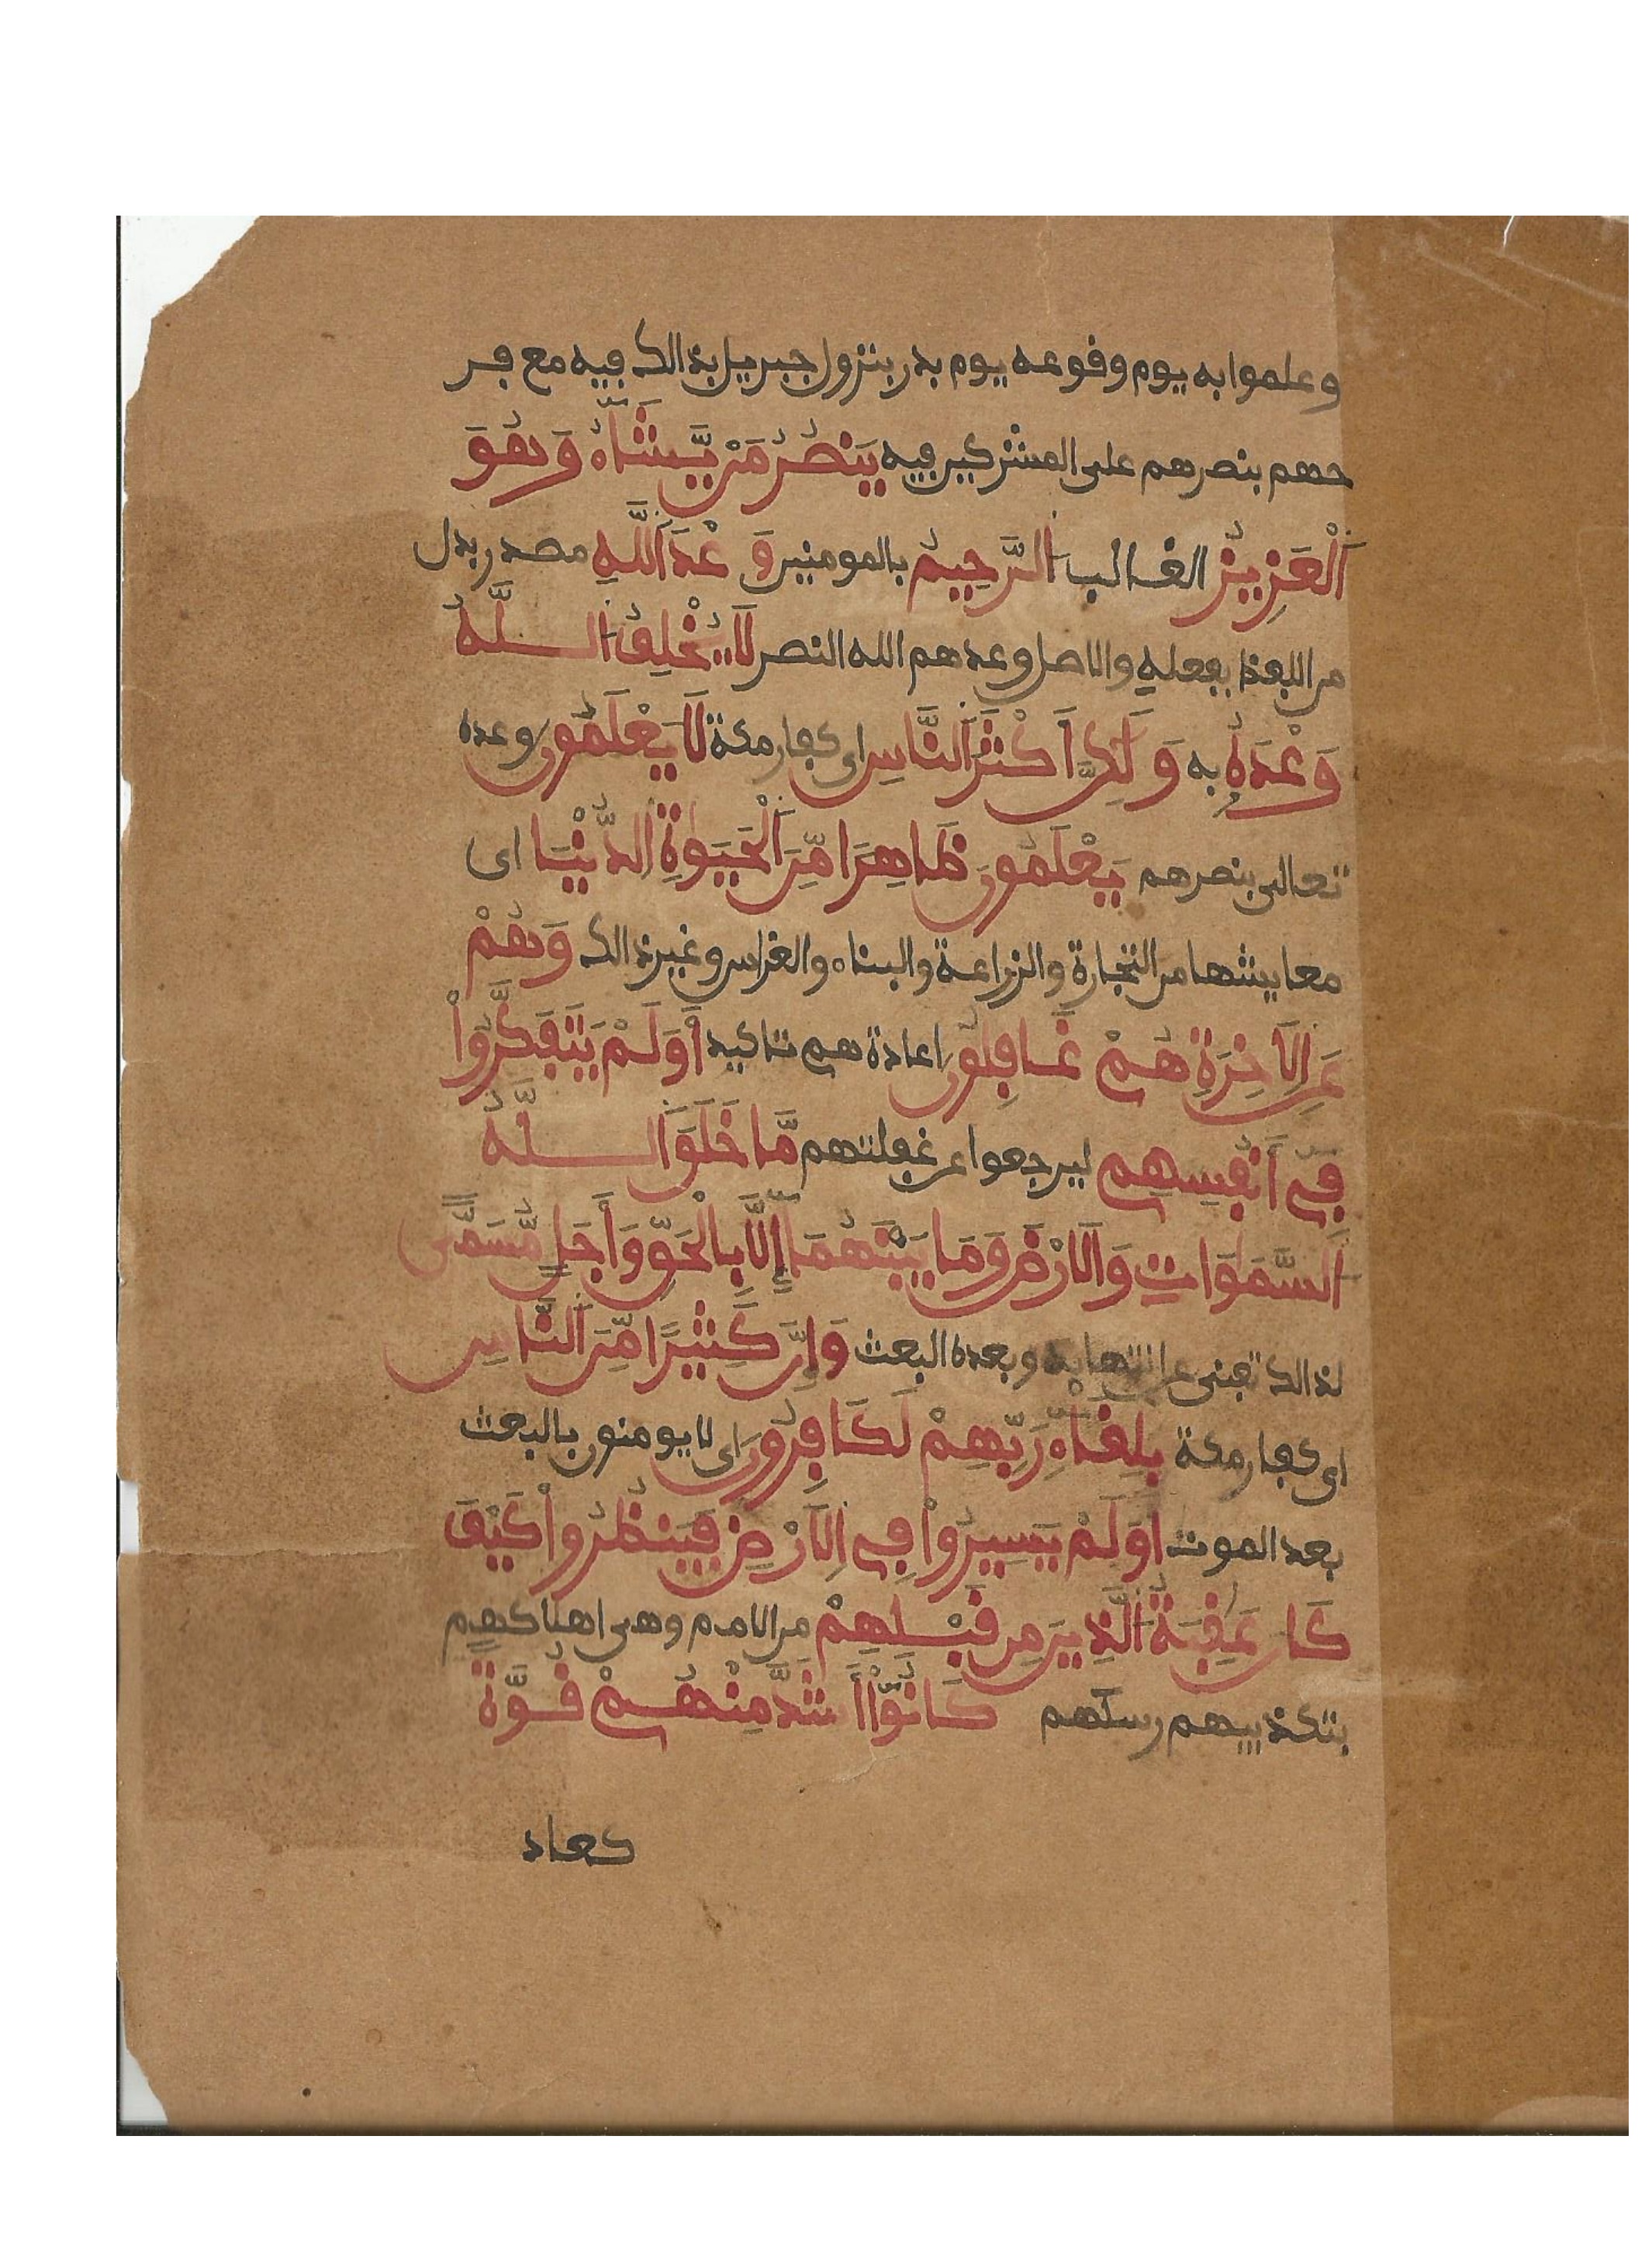 وعلموا به يوم وفوعه يوم بدر بنزول جبريل بذالك فيه مع فر
حهم بنصرهم على المشركين فيه يَنصُرُ مَنْ يَّشَآءُ وَهُوَ
اَلْعَزِيزُ الغالب اَلرَّحِيمُ بالمومنين وَعْدَ اَللَّهِ مصدر بدل
من اللفظ بفعله والاصل وعدهم الله النصر لَا يُخْلِفُ اُللَّهُ
وَعْدَهُۥ به وَلَٰكِنَّ أَكْثَرَ اَلنَّاسِ اى كفار مكة لَا يَعْلَمُونَ وعده
تعالى بنصرهم يَعْلَمُونَ ظَاهِرًا مِّنَ اَلْحَيَوٰةِ اِلدُّنْيَا اى
معايشها من التجارة والزراعة والبناء والغراس وغير ذالك وَهُمْ
عَنِ اِلَاخِرَةِ هُمْ غَافِلُونَ اعادة هم تاكيد أَوَلَمْ يَتَفَكَّرُواْ
فِےٓ أَنفُسِهِم ليرجعوا عن غفلتهم مَّا خَلَقَ اَللَّهُ
اُلسَّمَٰوَاتِ وَالَارْضَ وَمَا بَيْنَهُمَآ إِلَّا بِالْحَقِّ وَأَجَلٍ مُّسَمًّى
لذالك تفنى عن انتهايه وبعده البعث وَإِنَّ كَثِيرًا مِّنَ اَلنَّاسِ
اى كفار مكة بِلِقَآءِ رَبِّهِمْ لَكَافِرُونَ اى لا يومنون بالبعث
بعد الموت أَوَلَمْ يَسِيرُواْ فِے اِلَارْضِ فَيَنظُرُواْ كَيْفَ
كَانَ عَٰقِبَةُ اُلَّذِينَ مِن قَبْلِهِمْ من الامم وهى اهلاكهم
بتكذيبهم رسلهم كَانُوٓاْ أَشَدَّ مِنْهُمْ قُوَّةً
كعاد